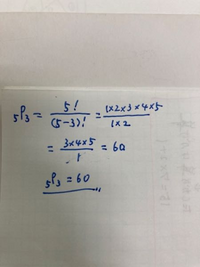 ₅P₃ = 5!/(5-3)! = 1×2×3×4×5/1×2
= 3×4×5/1 = 60
₅P₃ = 60